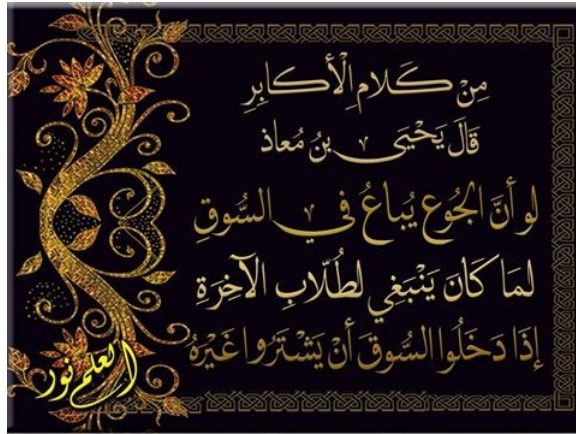 مِنْ كَلامِ الْأَكَابِرِ
قَالَ يَحْيَى بنُ مُعاذ
لو أنَّ الجُوع يُباعُ في السُّوقِ
لمَا كَانَ يَنْبَغي لطُلّابِ الآخِرَةِ
إذَا دَخَلُوا السُّوق أنْ يَشْتَرُوا غَيْرَهُ
العلم نور